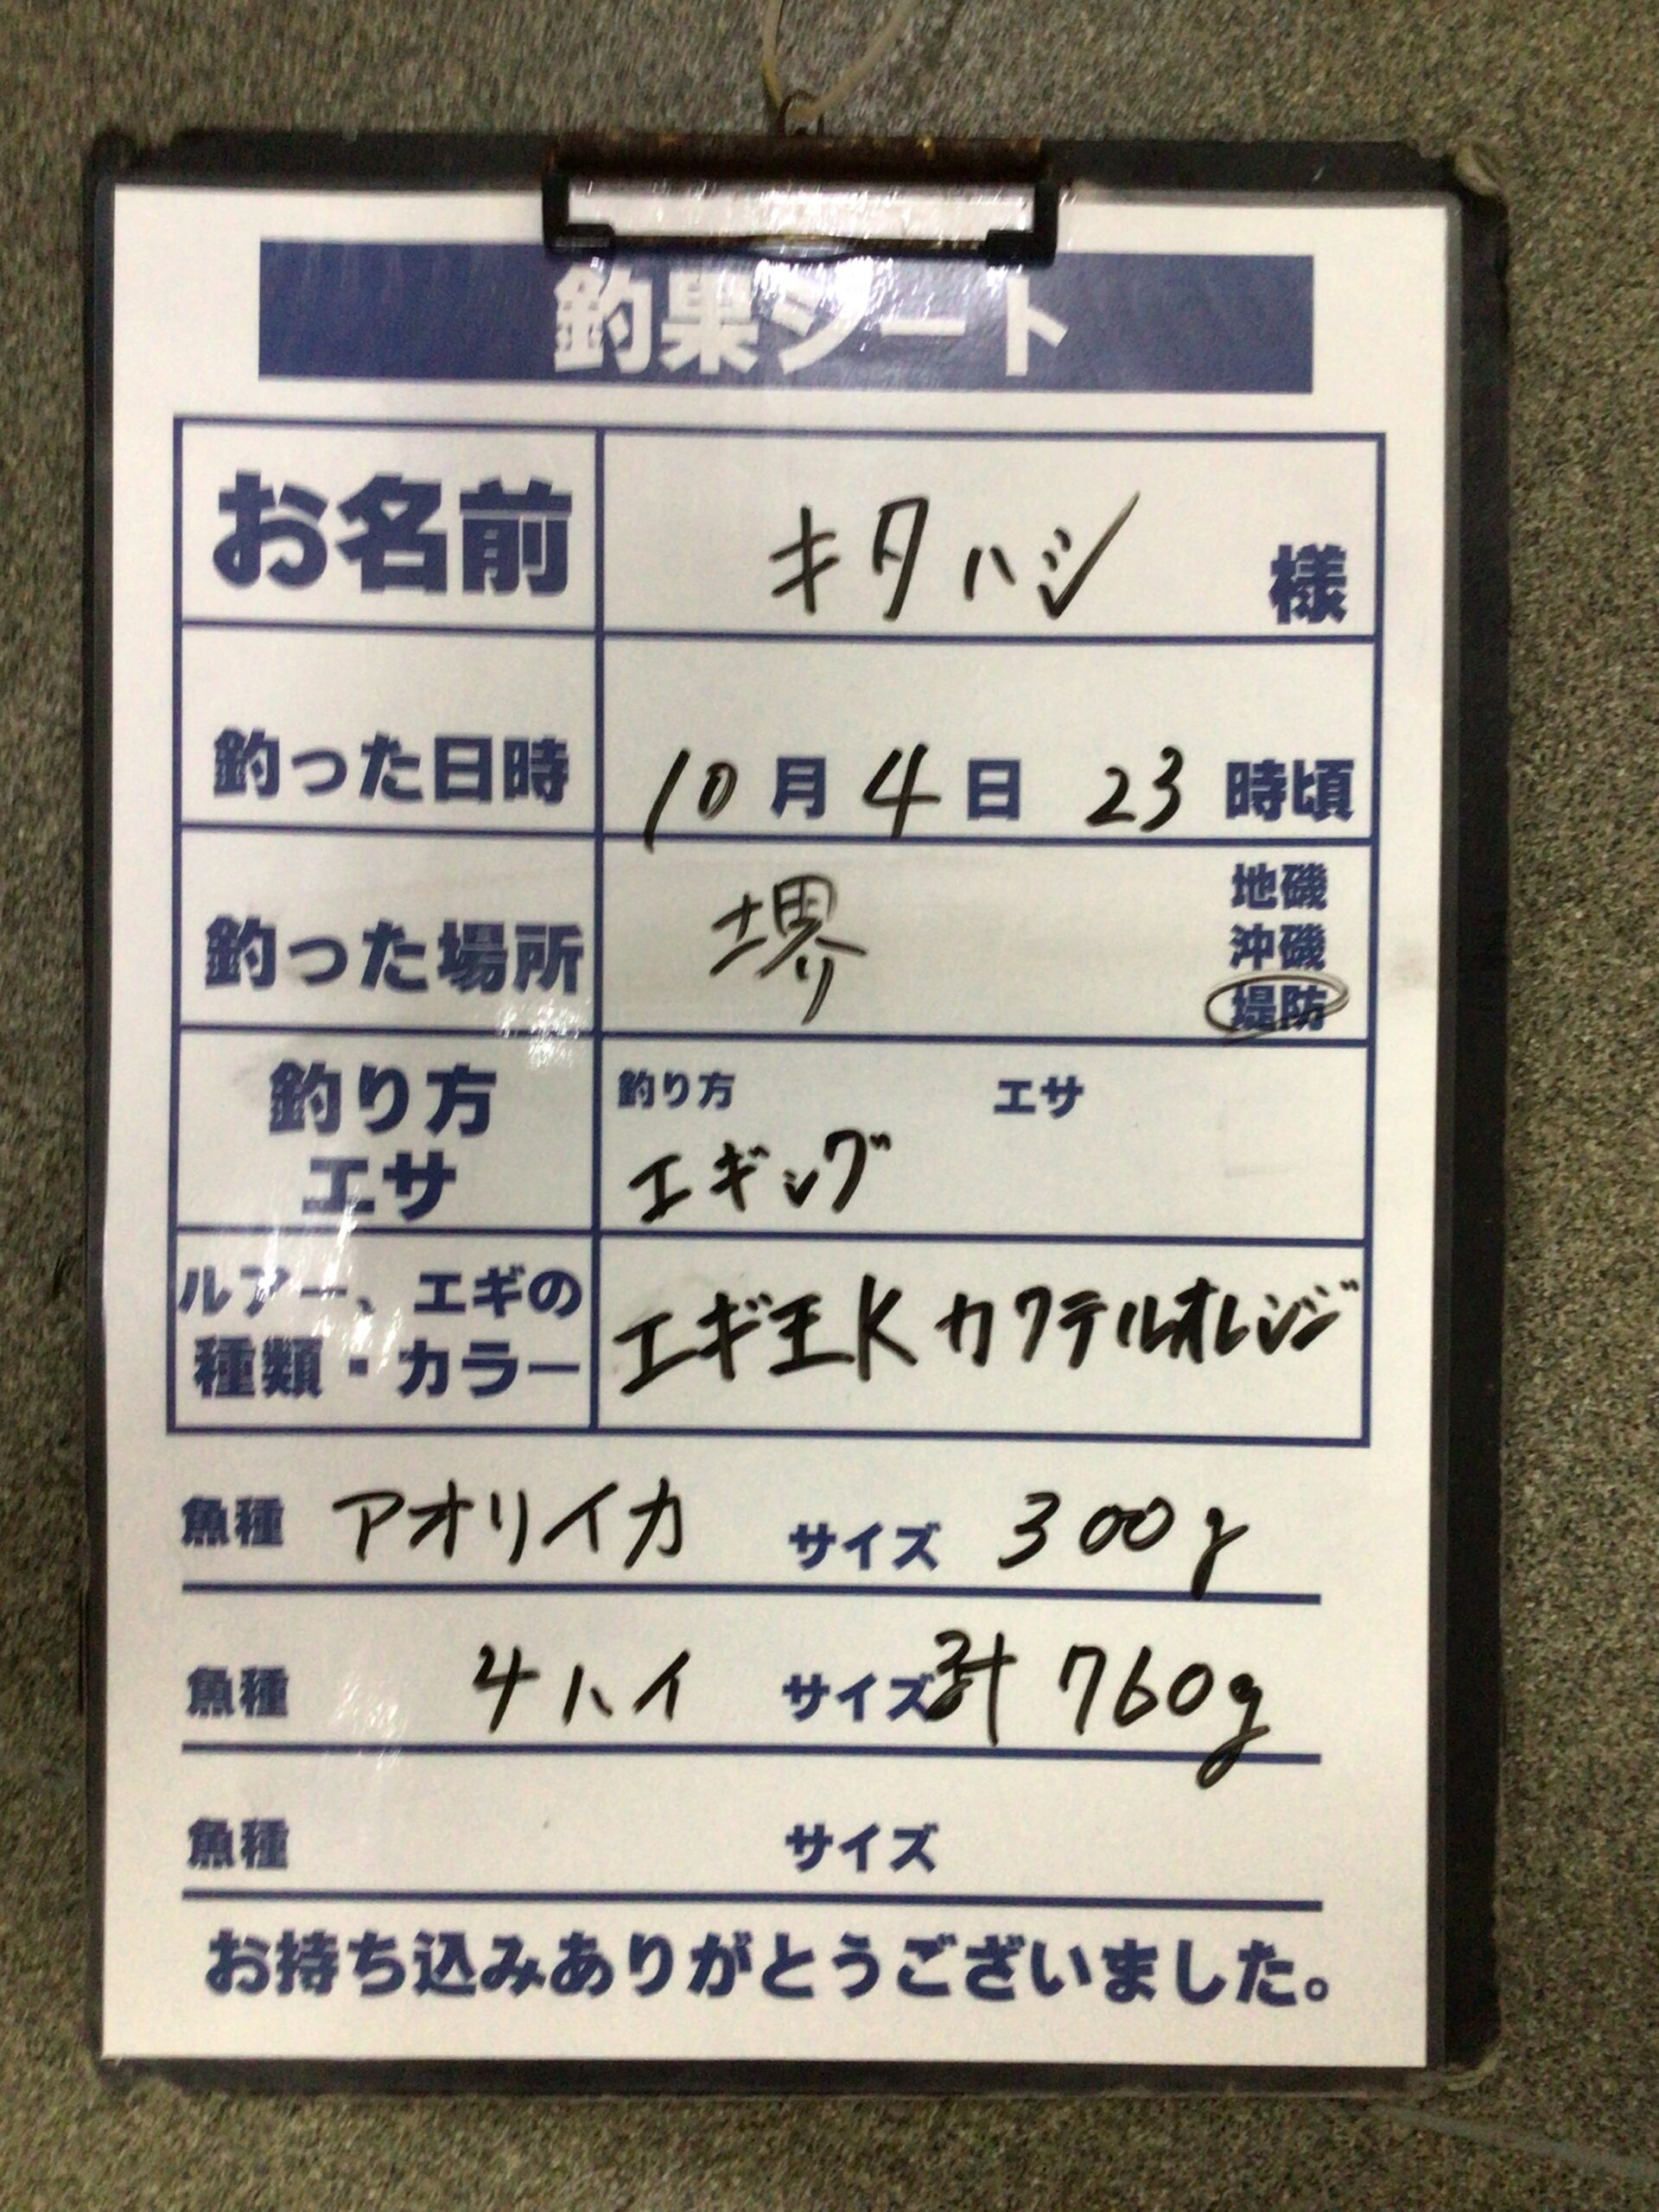 釣果シート
お名前 キタハシ 様
釣った日時 10月4日 23時頃
釣った場所 堺 地磯
沖磯
堤防
釣り方 エサ 釣り方 エサ
エギング
ルアー、エギの種類・カラー エギ王K カクテルオレンジ
魚種 アオリイカ サイズ 300g
魚種 4ハイ サイズ 計760g
魚種 サイズ
お持ち込みありがとうございました。